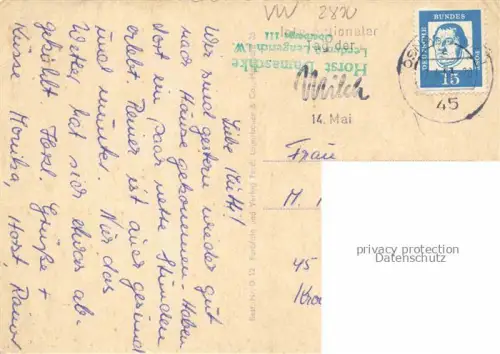 VW 2820
Liebe Kuthi!
Wir sind gestern wieder gut
nach Hause gekommen. Haben
dort ein paar nette Stunden
erlebt. Rainer ist auch gesund
und munter. Nur das
Wetter hat sich etwas ab-
gekühlt. Herzl. Grüße +
Küsse Monika, Horst Rainer
Internationaler
Tag der
Milch
14. Mai
Horst Damaschke
Lengerich i.W.
DEUTSCHE BUNDES POST
15
45
Frau
M.
45
privacy protection
Datenschutz